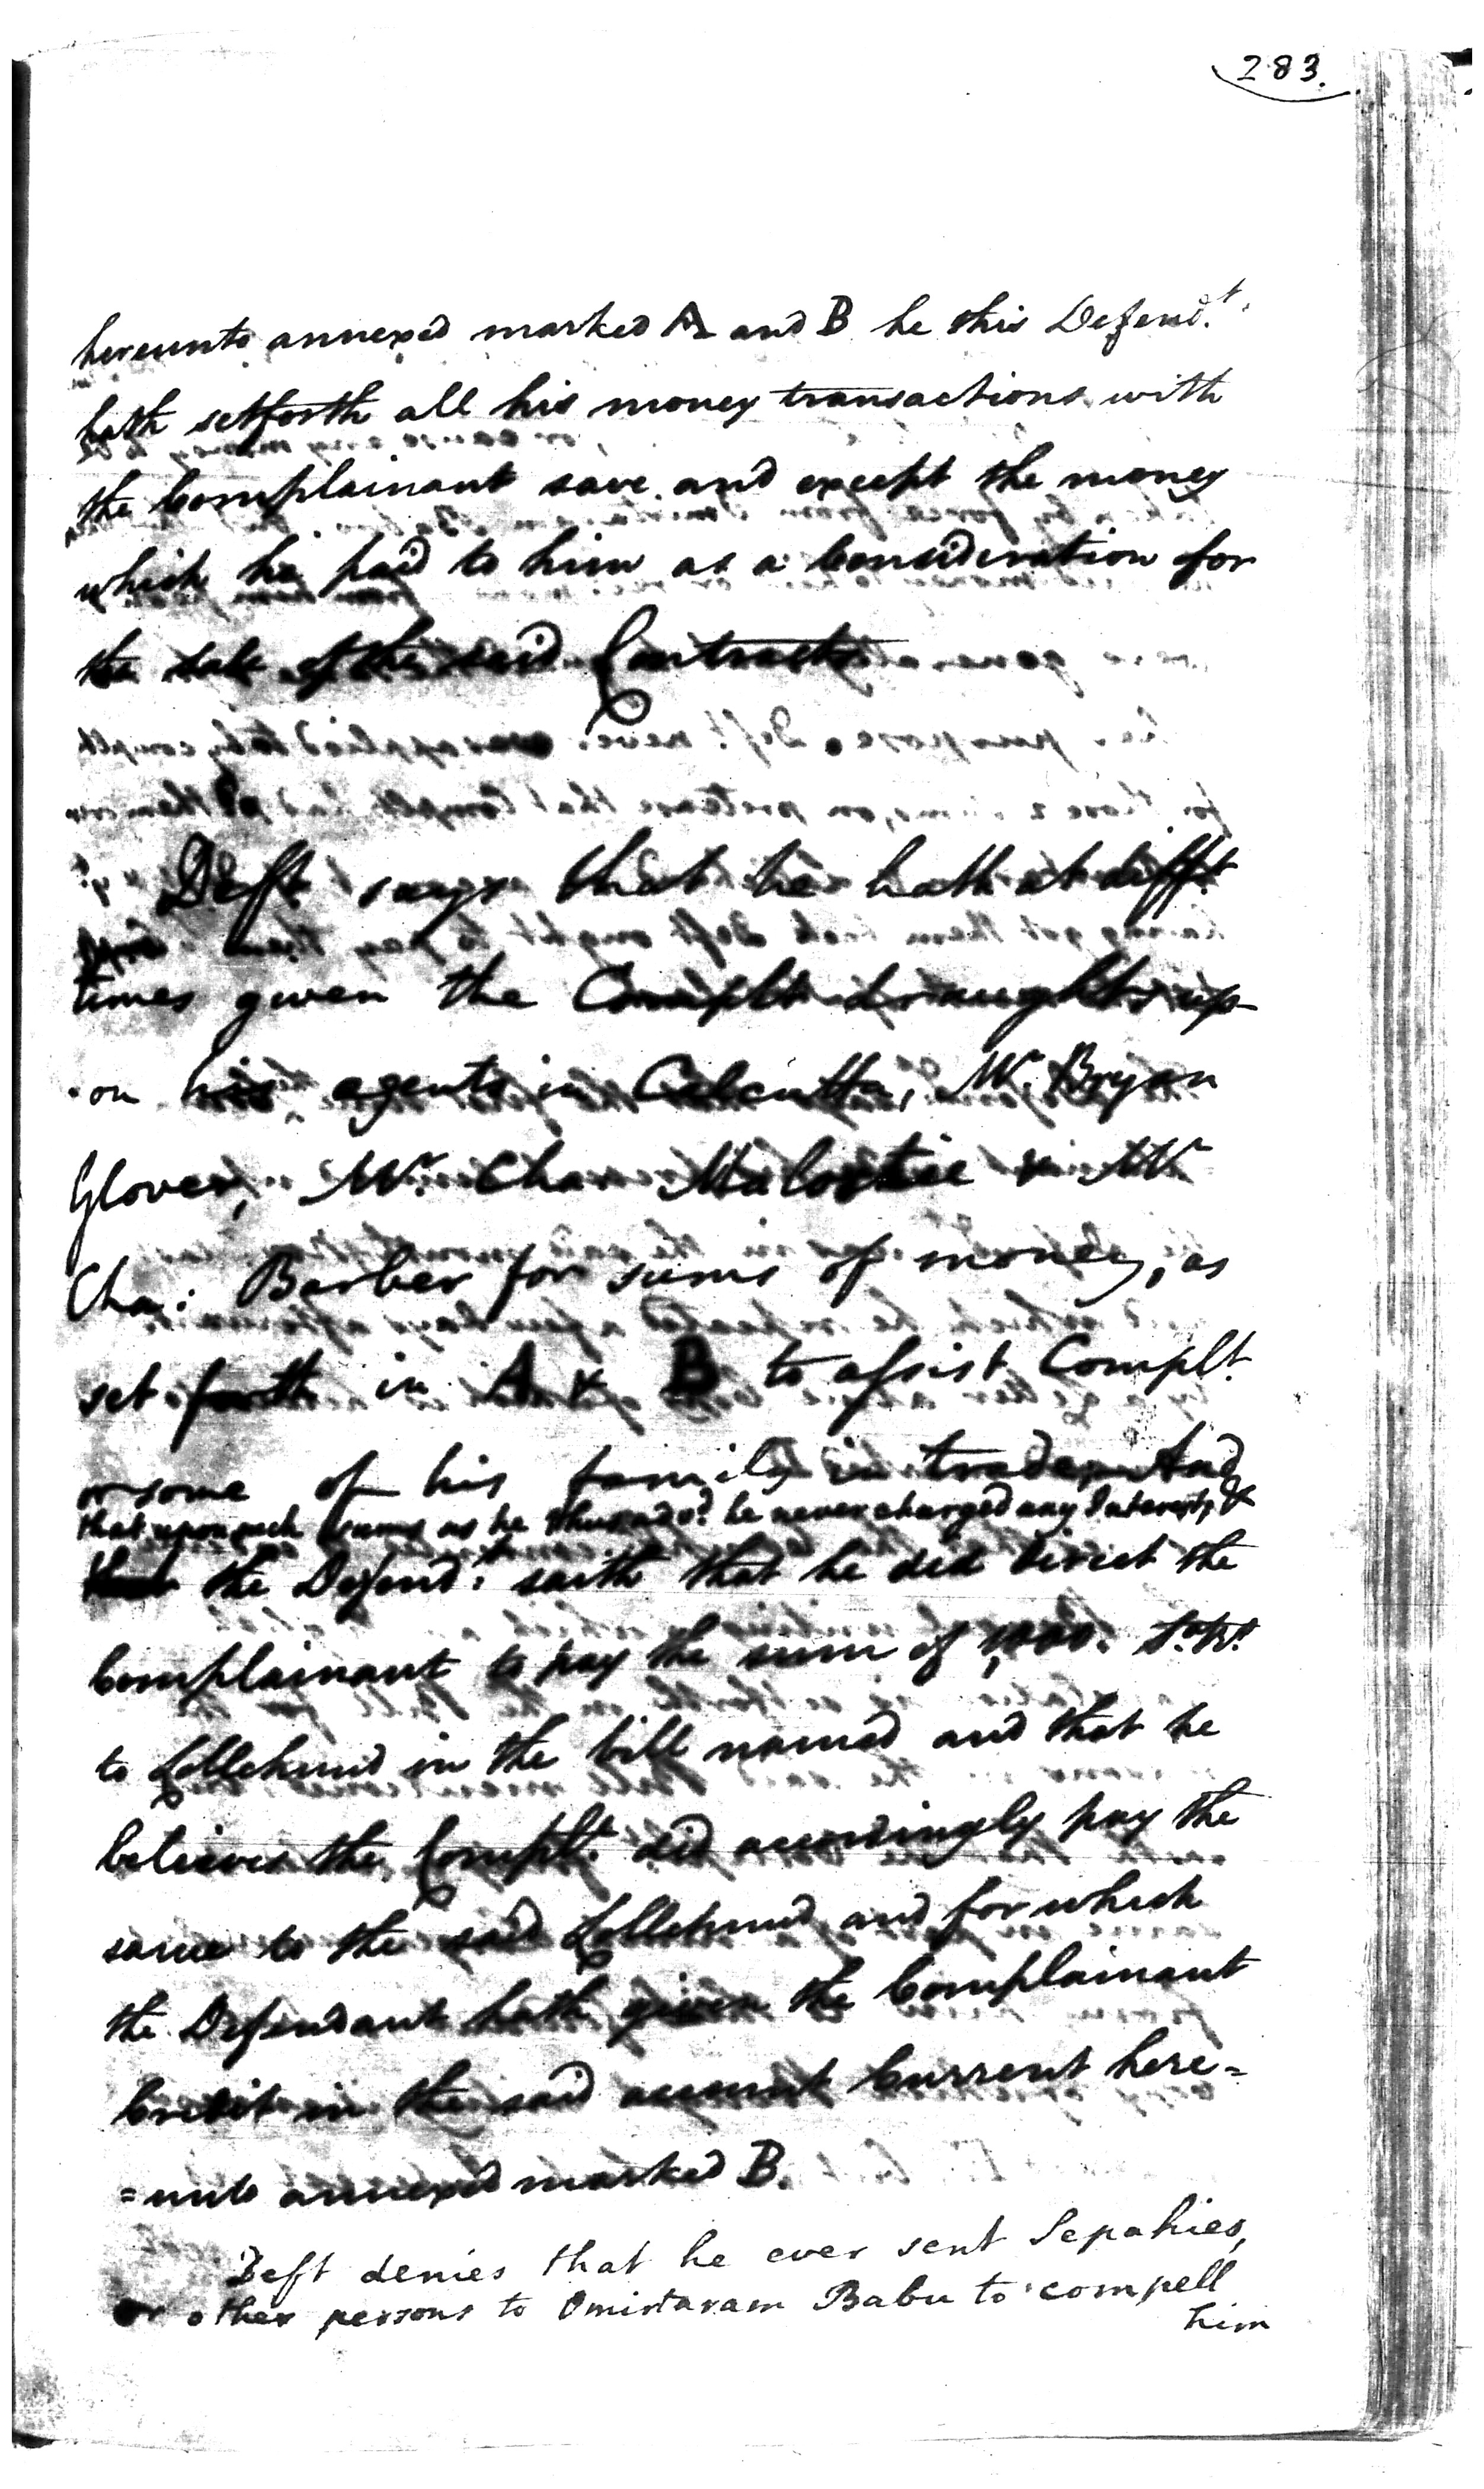 283.
hereunto annexed marked A and B he this Defend.t
hath setforth all his money transactions with
the Complainant save and except the money
which he paid to him as a Consideration for
the sale of the said Contracts
Deft says that he hath at difft
times given the Complt draughts up-
-on his agents in Calcutta, Mr. Bryan
Glover, Mr. Chas & Mr
Cha: Barber for sums of money, as
set forth in A & B to assist Complt.
or some of his family in trade And
that upon such sums as he thus adv.d he never charged any Interest, &
the Defend.t saith that he did direct the
Complainant to pay the sum of 1,000. St. Rs.
to Lollchund in the bill named and that he
believes the Complt. did accordingly pay the
same to the said Lollchund and for which
the Defendant hath given the Complainant
Credit in the said account Current here=
=unto annexed marked B.
Deft denies that he ever sent Sepahies,
or other persons to Omirtaram Babu to compell
him